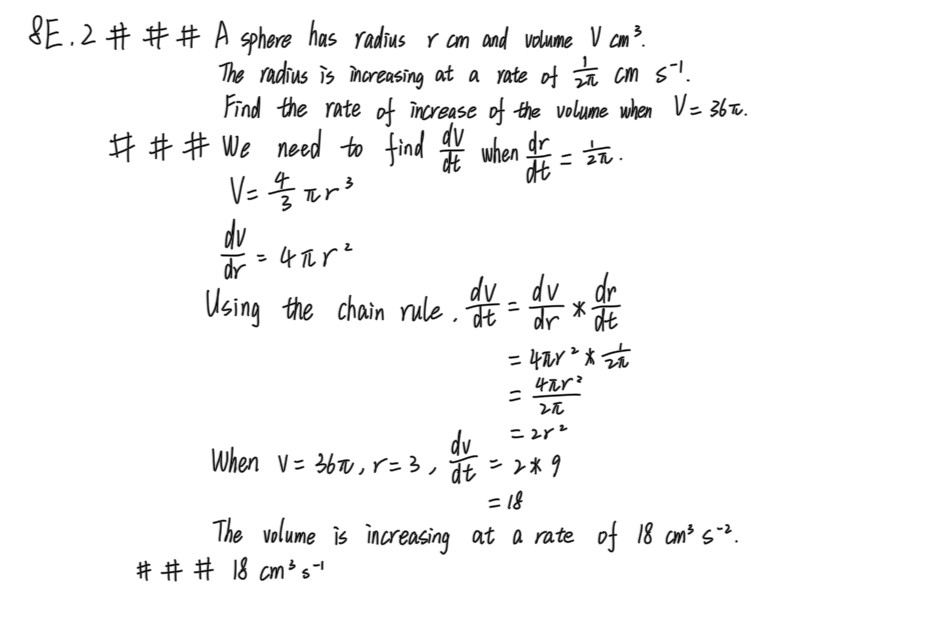 8E.2 # # # A sphere has radius r cm and volume V cm³.
The radius is increasing at a rate of 1/2π cm s⁻¹.
Find the rate of increase of the volume when V = 36π.
# # # We need to find dv/dt when dr/dt = 1/2π.
V = 4/3 πr³
dv/dr = 4πr²
Using the chain rule. dv/dt = dv/dr * dr/dt
= 4πr² * 1/2π
= 4πr²/2π
= 2r²
When V = 36π, r = 3, dv/dt = 2 * 9
= 18
The volume is increasing at a rate of 18 cm³ s⁻².
# # # 18 cm³ s⁻¹